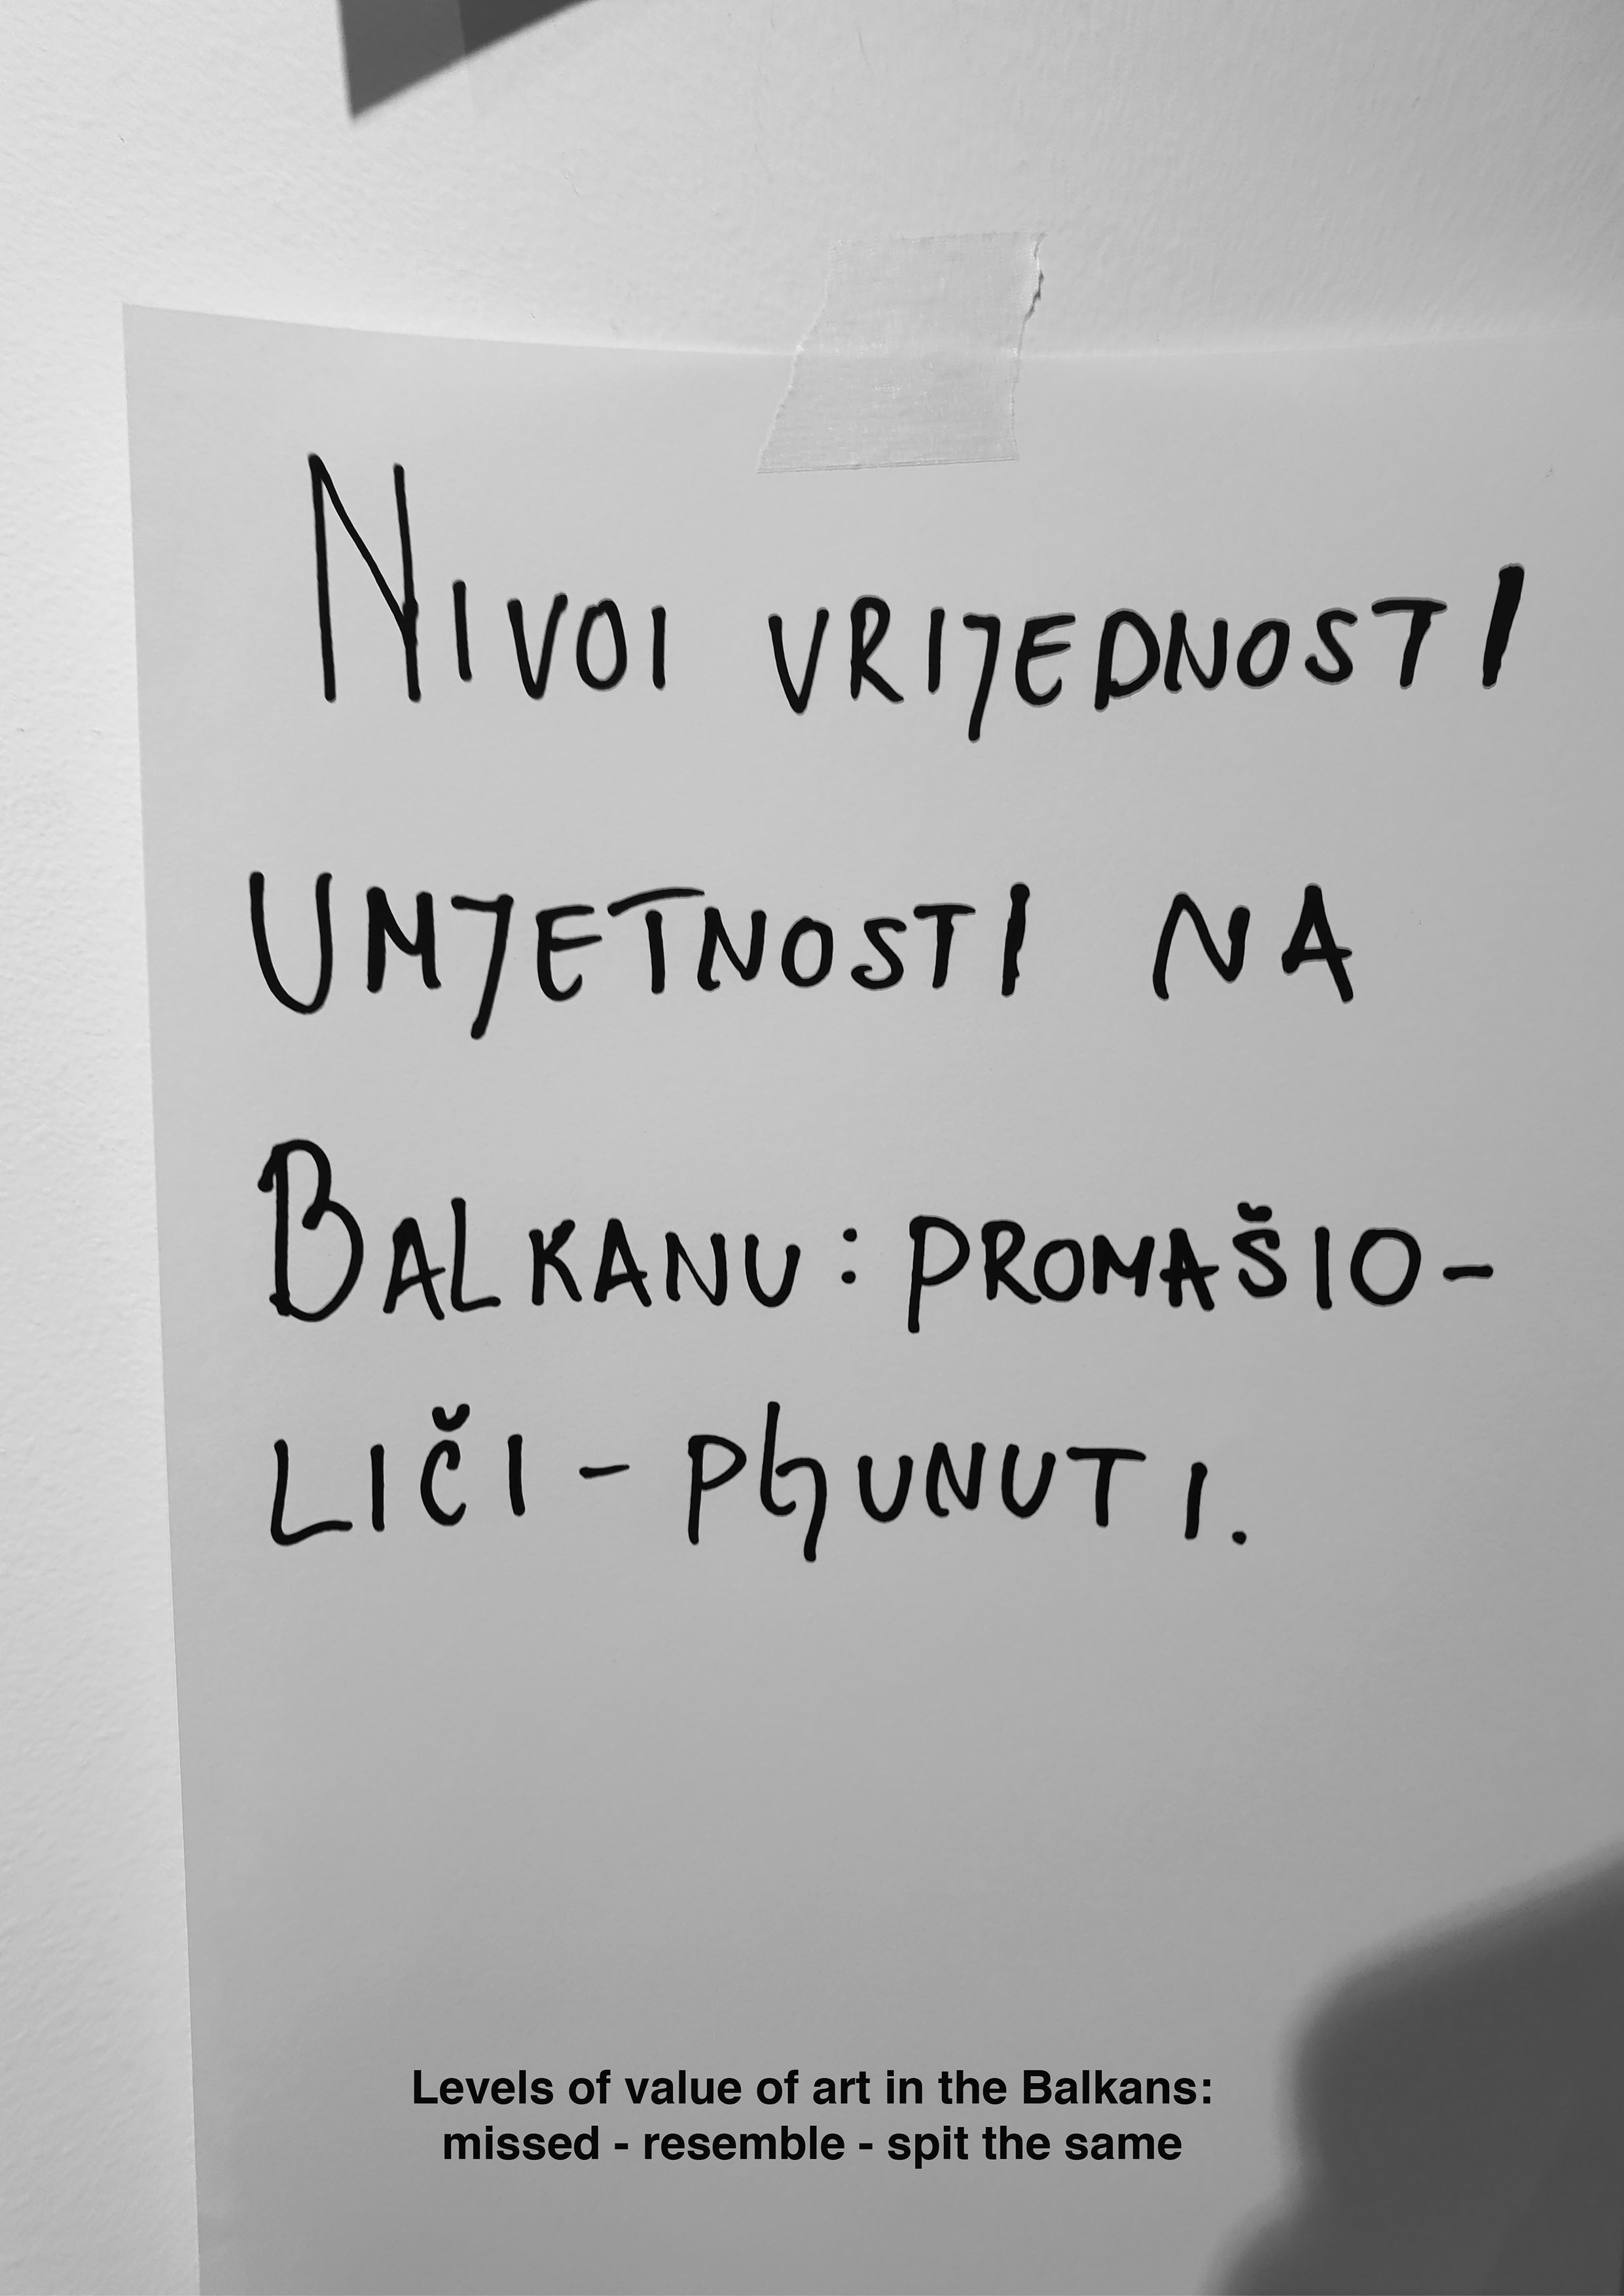 NIVOI VRIJEDNOSTI
UMJETNOSTI NA
BALKANU: PROMAŠIO-
LIČI - PLJUNUTI.
Levels of value of art in the Balkans:
missed - resemble - spit the same